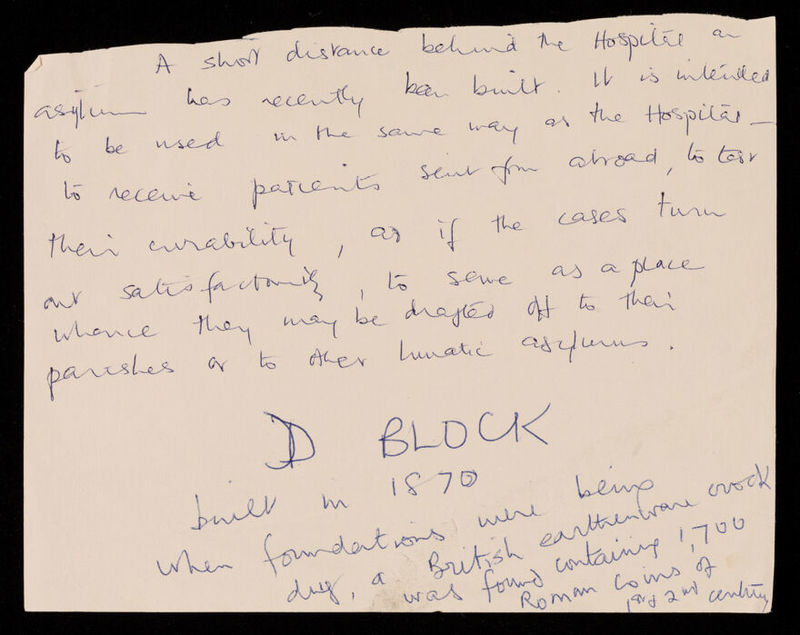 A short distance behind the Hospital an
asylum has recently been built. It is intended
to be used in the same way as the Hospital —
to receive patients sent from abroad, to test
their curability, as if the cases turn
out satisfactorily, to serve as a place
whence they may be drafted off to their
parishes or to other lunatic asylums.
D BLOCK
built in 1870
when foundations were being
dug, a British earthenware crock
was found containing 1,700
Roman coins of
1st & 2nd century